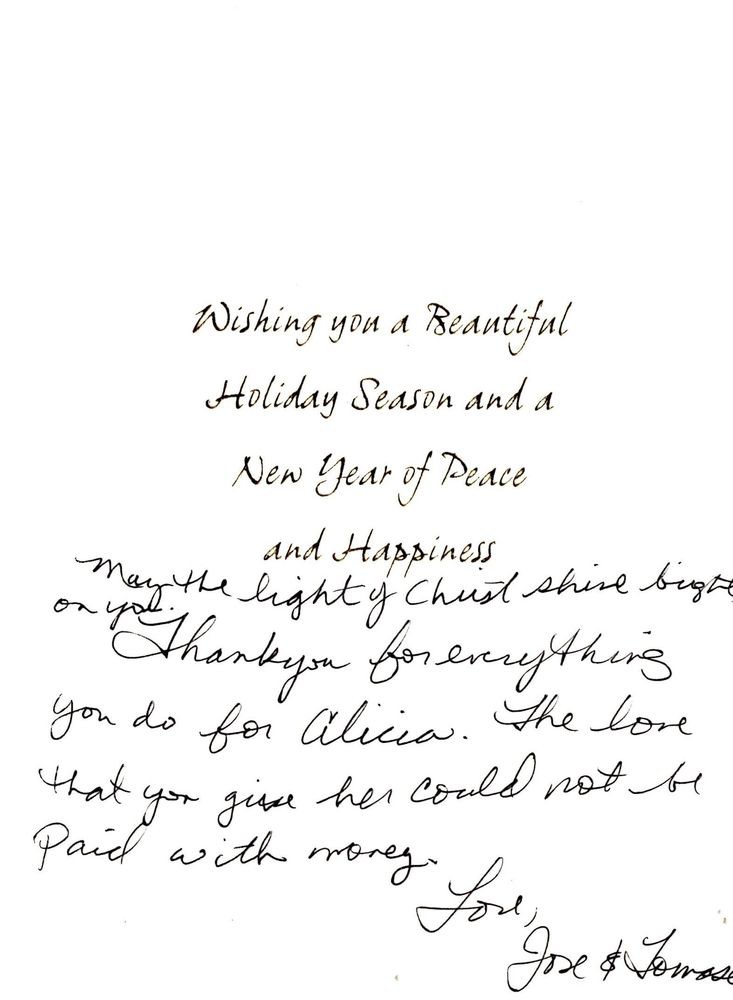 Wishing you a Beautiful
Holiday Season and a
New Year of Peace
and Happiness
May the light of Christ shine bright
on you.
Thankyou for everything
you do for Alicia. The love
that you give her could not be
Paid with money.
Love,
Jose &